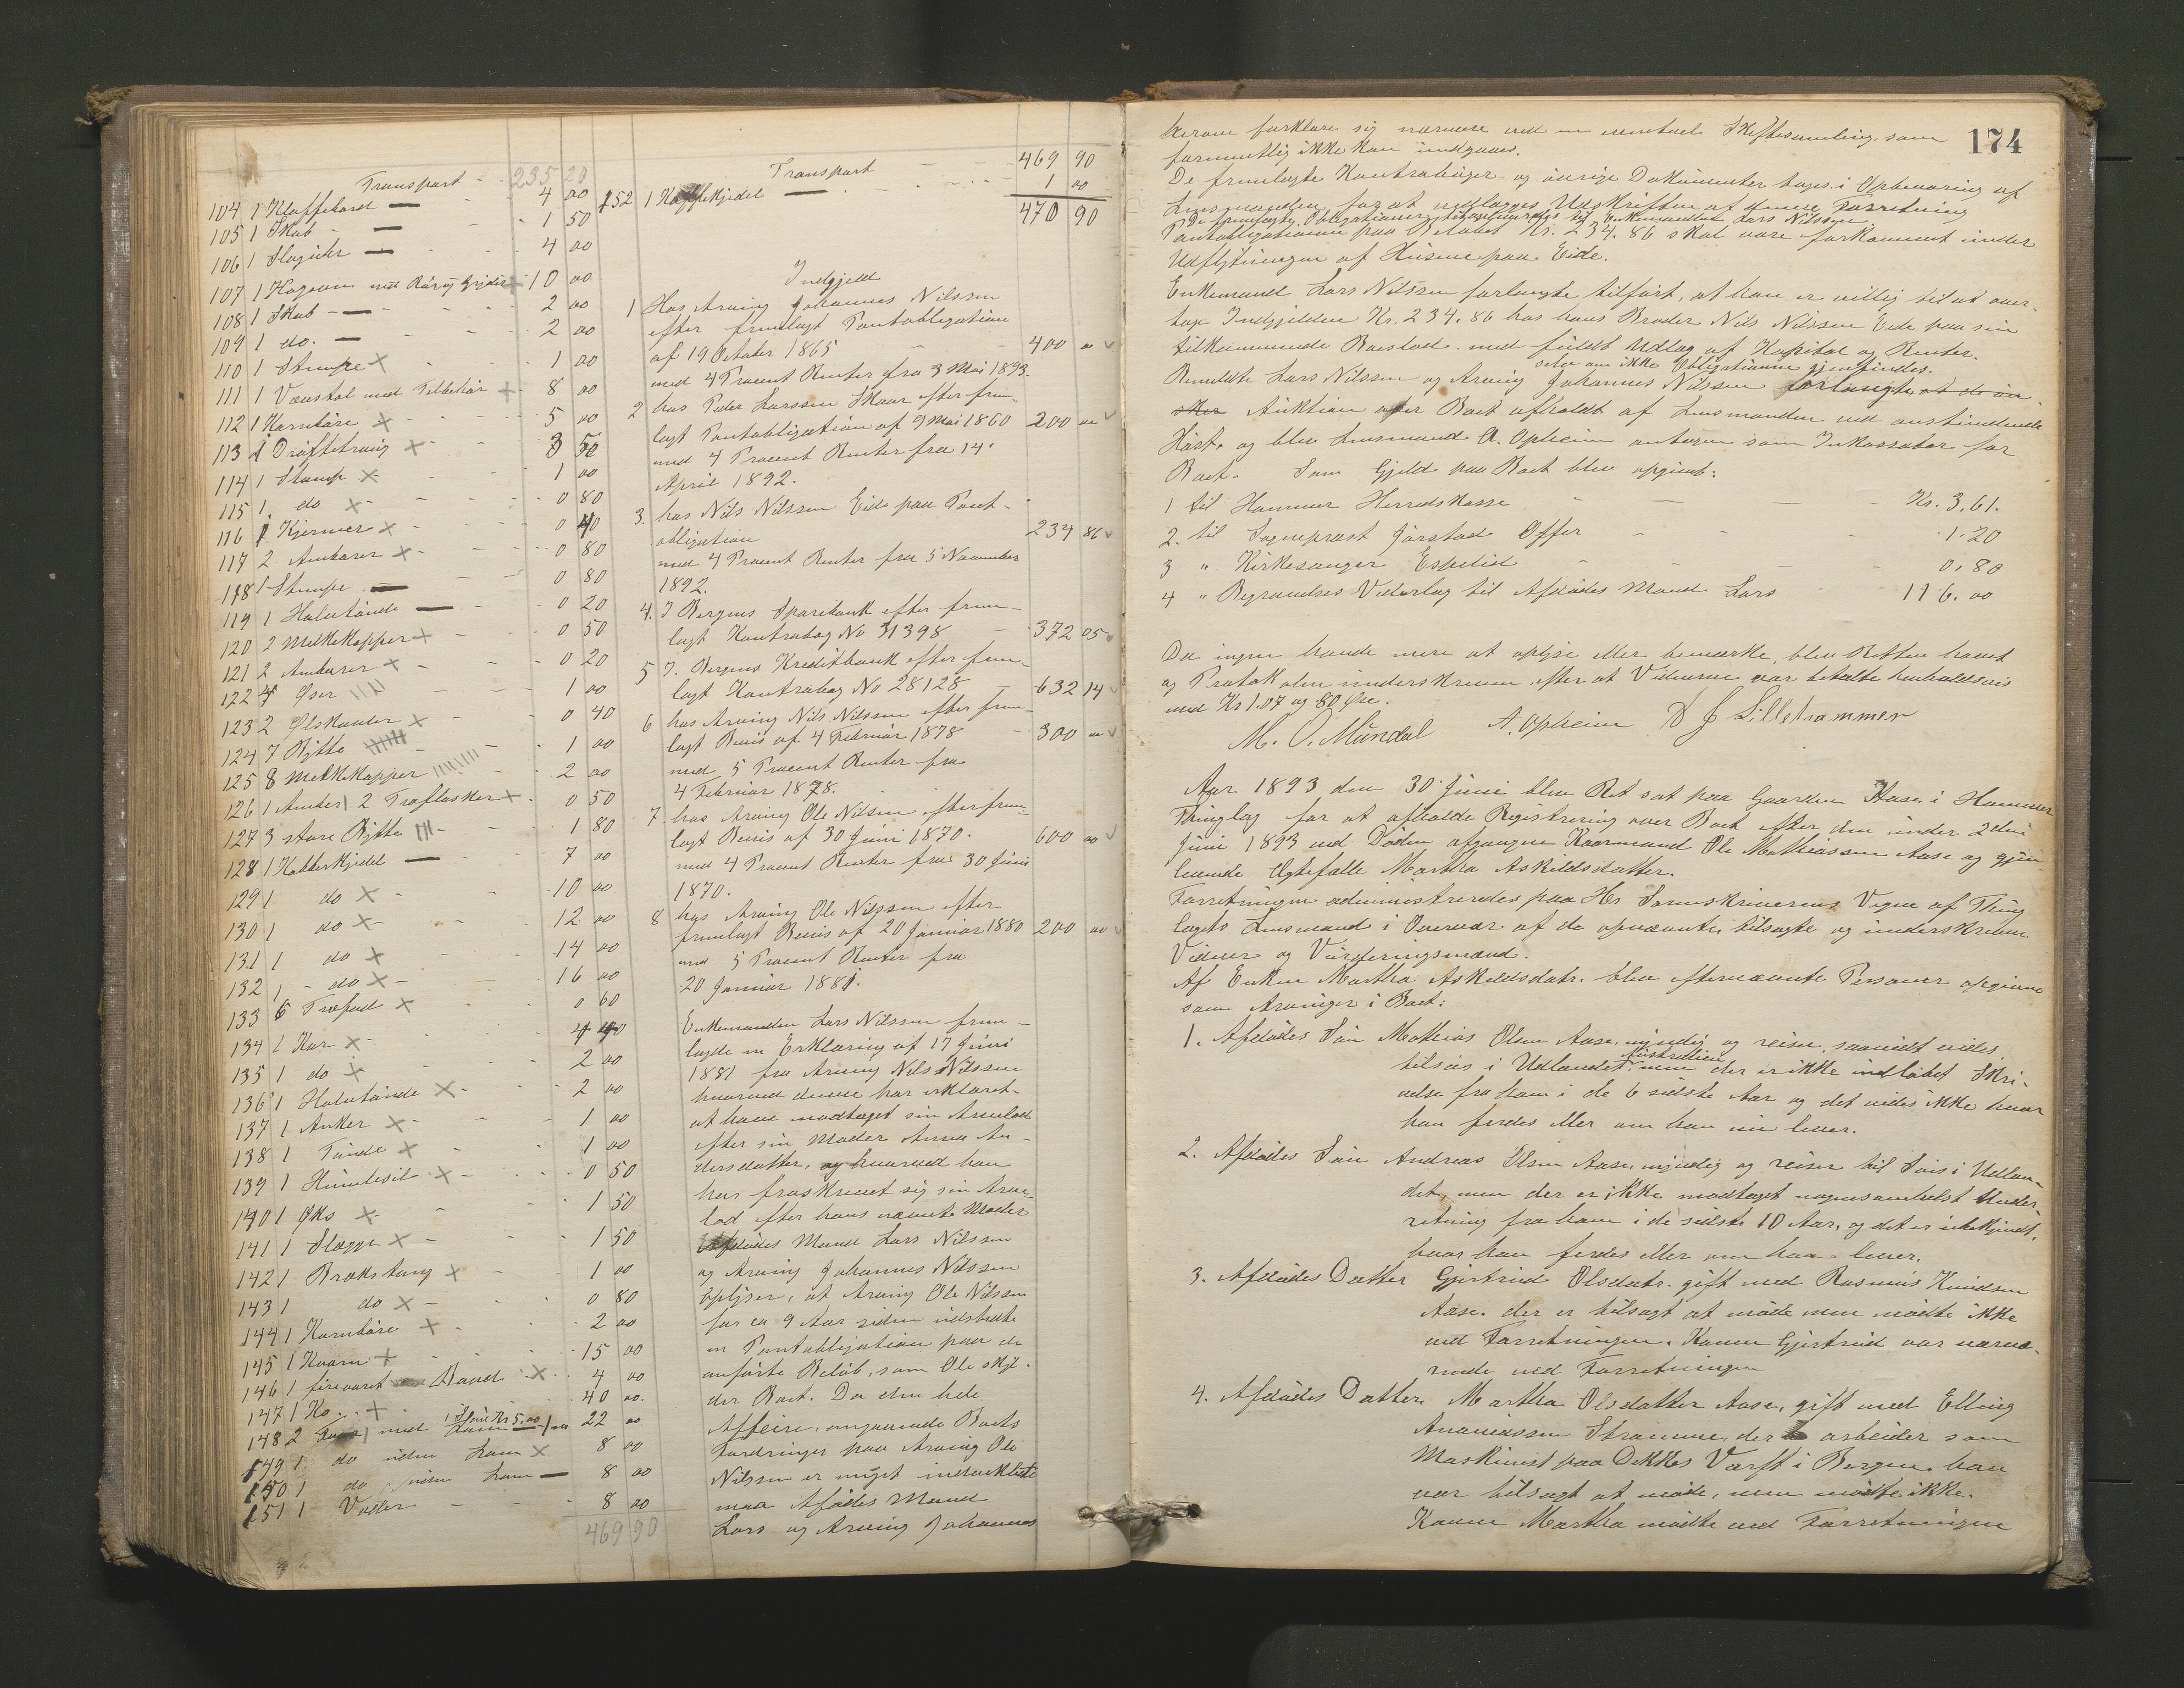 Transport - - 235 20
104 1 Klaffebord — 4 00
105 1 Skab - — 1 50
106 1 Slaguhr — 4 00
107 1 Kagoon med Rør og Gryder 10 00
108 1 Skab - — 2 00
109 1 do. — 2 00
110 1 Stampe × 1 00
111 1 Vævstol med Tilbehør × 8 00
112 1 Kornbøre × 5 00
113 1 Drøftetraug × 3 50
114 1 Stamp × 1 00
115 1 do × 0 80
116 1 Kjerner × 0 40
117 2 Ambarer × 0 80
118 1 Stampe — 0 80
119 1 Halvtønde — 0 20
120 2 Melkekopper × 0 50
121 2 Ambarer × 0 20
122 4 Øser 1 00
123 2 Ølskander × 0 40
124 7 Bytte 1 00
125 8 Melkekopper 2 00
126 1 Anker 2 Træflasker × 0 50
127 3 store Bytte 1 80
128 1 Kobberkjedel — 7 00
129 1 do × 10 00
130 1 do × 12 00
131 1 do × 14 00
132 1 do × 16 00
133 6 Træfad × 0 60
134 1 Kar × 4 40
135 1 do × 2 00
136 1 Halvtønde × 2 00
137 1 Anker × 1 00
138 1 Tønde × 1 00
139 1 × 0 50
140 1 Øks × 1 50
141 1 Slægge × 1 50
142 1 Brækstang × 1 00
143 1 do × 0 80
144 1 Kornbøre × 2 00
145 1 Kværn × 15 00
146 1 fireaaret Baad × 4 00
147 1 Ko × 40 00.
148 2 Faar med Lam 22 00
149 1 do uden Lam × 8 00
150 1 do uden Lam — 8 00
151 1 Væder 8 00
469 90
Transport - - 469 90
152 1 Kaffekjedel — 1 00
470 90
Indgjeld
1 Hos Arving Johannes Nilssen
efter fremlagt Pantobligation
af 19 October 1865 400 00
med 4 Procent Renter fra 3 Mai 1893.
2 hos Peder Larssen Skaar efter frem-
lagt Pantobligation af 9 Mai 1860 200 00
med 4 Procent Renter fra 14.
April 1892.
3. hos Nils Nilssen Eide paa Pant-
obligation 234 86
med 4 Procent Renter fra 5 November
1892.
4. I Bergens Sparebank efter frem-
lagt Kontrabog No 31398 372 05
5 I. Bergens Kreditbank efter frem-
lagt Kontrabog No 28128 632 14
6 hos Arving Nils Nilssen efter frem-
lagt Bevis af 4 Februar 1878 300 00
med 5 Procent Renter fra
4 Februar 1878.
7. hos Arving Ole Nilssen efter frem-
lagt Bevis af 30 Juni 1870. 600 00
med 4 Procent Renter fra 30 Juni
1870.
8 hos Arving Ole Nilssen efter
fremlagt Bevis af 20 Januar 1880 200 00
med 5 Procent Renter fra
20 Januar 1881.
Enkemanden Lars Nilssen frem-
lagde en Erklæring af 17 Juni
1881 fra Arving Nils Nilssen
hvorved denne har erklæret
at have modtaget sin Arvelod
efter sin Moder Anna An-
dersdatter, og hvorved han
har fraskrevet sig sin Arve
lod efter hans nævnte Moder
Afdødes Mand Lars Nilssen
og Arving Johannes Nilssen
oplyser, at Arving Ole Nilssen
for ca 9 Aar siden udstedte
en Pantobligation paa de
anførte Beløb, som Ole skyl-
der Boet. Da den hele
Affeire angaaende Boets
Fordringer paa Arving Ole
Nilssen er meget indviklede
maa Afdødes Mand
Lars og Arving Johannes
174
herom forklare sig nærmere ved en eventuel Skiftesamling, som
formentlig ikke kan undgaaes.
De fremlagte Kontrabøger og øvrige Dokumenter toges i Opbevaring af
Lensmanden for at vedlægges Udskriften af denne Forretning
De fremlagte Obligationer tilbageleveredes til Enkemanden Lars Nilssen
Pantobligationen paa Beløbet Kr. 234.86 skal være forkommet under
Udflytningen af Husene paa Eide.
Enkemand Lars Nilssen forlangte tilført, at han er villig til at over-
tage Indgjelden Kr. 234.86 hos hans Broder Nils Nilssen Eide paa sin
tilkommende Boeslod med fuldt Udlæg af Kapital og Renter.
selv om ikke Obligationen gjenfindes.
Bemeldte Lars Nilssen og Arving Johannes Nilssen forlangte at de øn-
sker Auktion over Boet afholdt af Lensmanden ved anstundende
Høst, og blev Lensmand A. Opheim antagen som Inkassator for
Boet. Som Gjeld paa Boet blev opgivet:
1 til Hammer Herredskasse Kr. 3.61.
2. til Sogneprest Jørstad Offer 1.20
3 " Kirkesanger Espelid 0.80
4 " Begravelses Vederlag til Afdødes Mand Lars 116.00
Da ingen havde mere at oplyse eller bemærke, blev Retten hævet
og Protokolen underskreven efter at Vidnerne var betalte henholdsvis
med Kr 1.07 og 80 Øre.
M. O. Mundal A. Opheim D J Lillestrammer
Aar 1893 den 30 Juni blev Ret sat paa Gaarden Aase i Hammer
Thinglag for at afholde Registrering over Boet efter den under 2den
Juni 1893 ved Døden afgangne Kaarmand Ole Mathiassen Aase og gjen
levende Ægtefælle Martha Askildsdatter.
Forretningen administreredes paa Hr Sorenskriverens Vegne af Thing
lagets Lensmand i Overvær af de opnævnte, tilsagte og underskrevne
Vidner og Vurderingsmænd.
Af Enken Martha Askildsdatr. blev efternævnte Personer opgivne
som Arvinger i Boet:
1. Afdødes Søn Mathias Olsen Aase, myndig og reiser, saavidt vides
tilsøs i Udlandet Australien men der er ikke indløbet Skri-
velse fra ham i de 6 sidste Aar og det vides ikke hvor
han færdes eller om han nu lever.
2. Afdødes Søn Andreas Olsen Aase, myndig og reiser til Søis i Udlan-
det, men der er ikke modtaget nogensomhelst Under-
retning fra ham i de sidste 10 Aar, og det er ubekjendt,
hvor han færdes eller om han lever.
3. Afdødes Datter Gjertrud Olsdatr. gift med Rasmus Knudsen
Aase. der er tilsagt at møde men mødte ikke
ved Forretningen. Konen Gjertrud var nærvæ-
rende ved Forretningen
4. Afdødes Datter Martha Olsdatter Aase, gift med Elling
Ananiassen Stramme, der arbeider som
Maskinist paa Dekkes Værft i Bergen, han
var tilsagt at møde, men mødte ikke.
Konen Martha mødte ved Forretningen